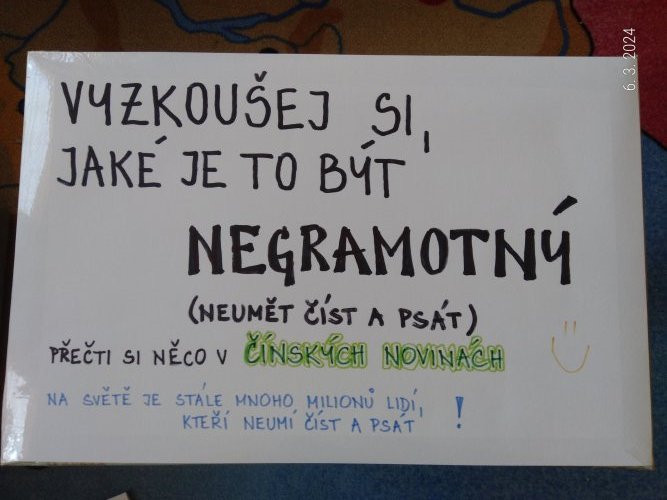 VYZKOUŠEJ SI,
JAKÉ JE TO BÝT
NEGRAMOTNÝ
(NEUMĚT ČÍST A PSÁT)
PŘEČTI SI NĚCO V ČÍNSKÝCH NOVINÁCH
NA SVĚTĚ JE STÁLE MNOHO MILIONŮ LIDÍ,
KTEŘÍ NEUMÍ ČÍST A PSÁT !
6. 3. 2024